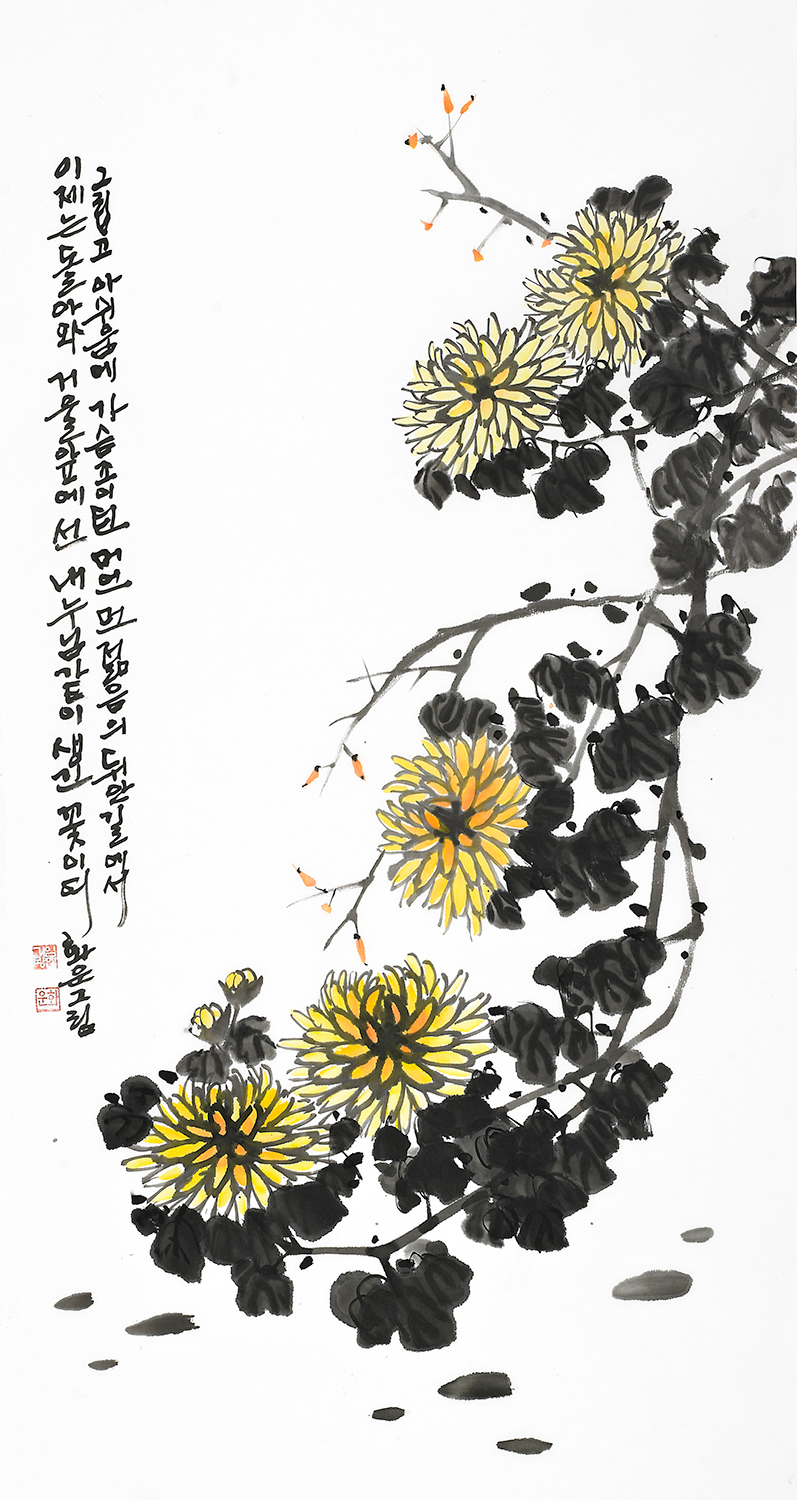 그립고 아쉬움에 가슴조이던 머언 먼 젊음의 뒤안길에서
이제는 돌아와 거울앞에 선 내누님같이 생긴 꽃이여
화운그림
화운